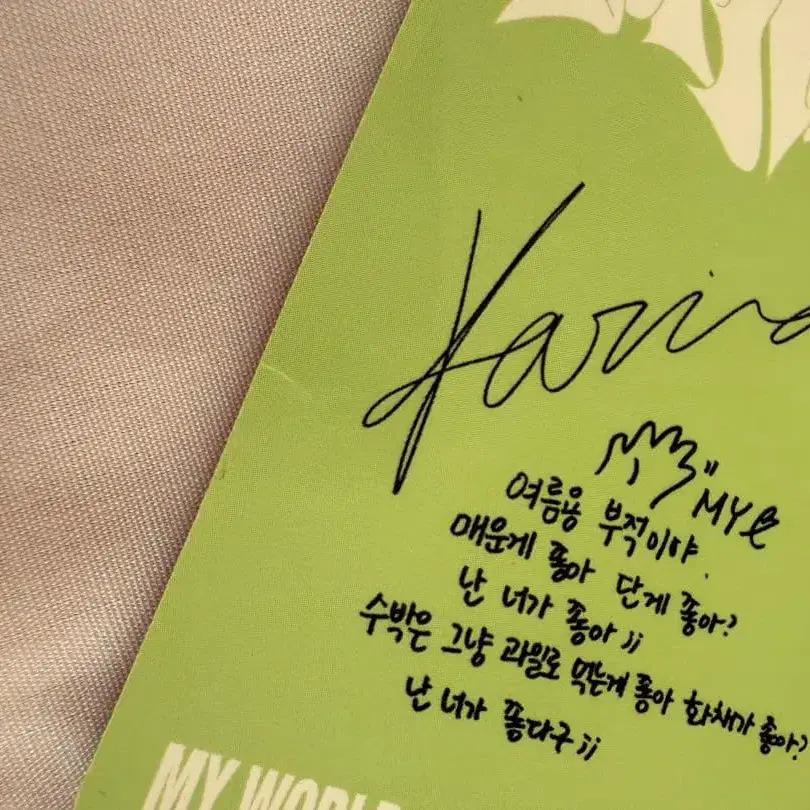 Karina
MY
여름용 부적이야.
매운게 좋아 단게 좋아?
난 너가 좋아ㅎㅎ
수박은 그냥 과일로 먹는게 좋아 화채가 좋아?
난 너가 좋다구ㅎㅎ
MY WORLD